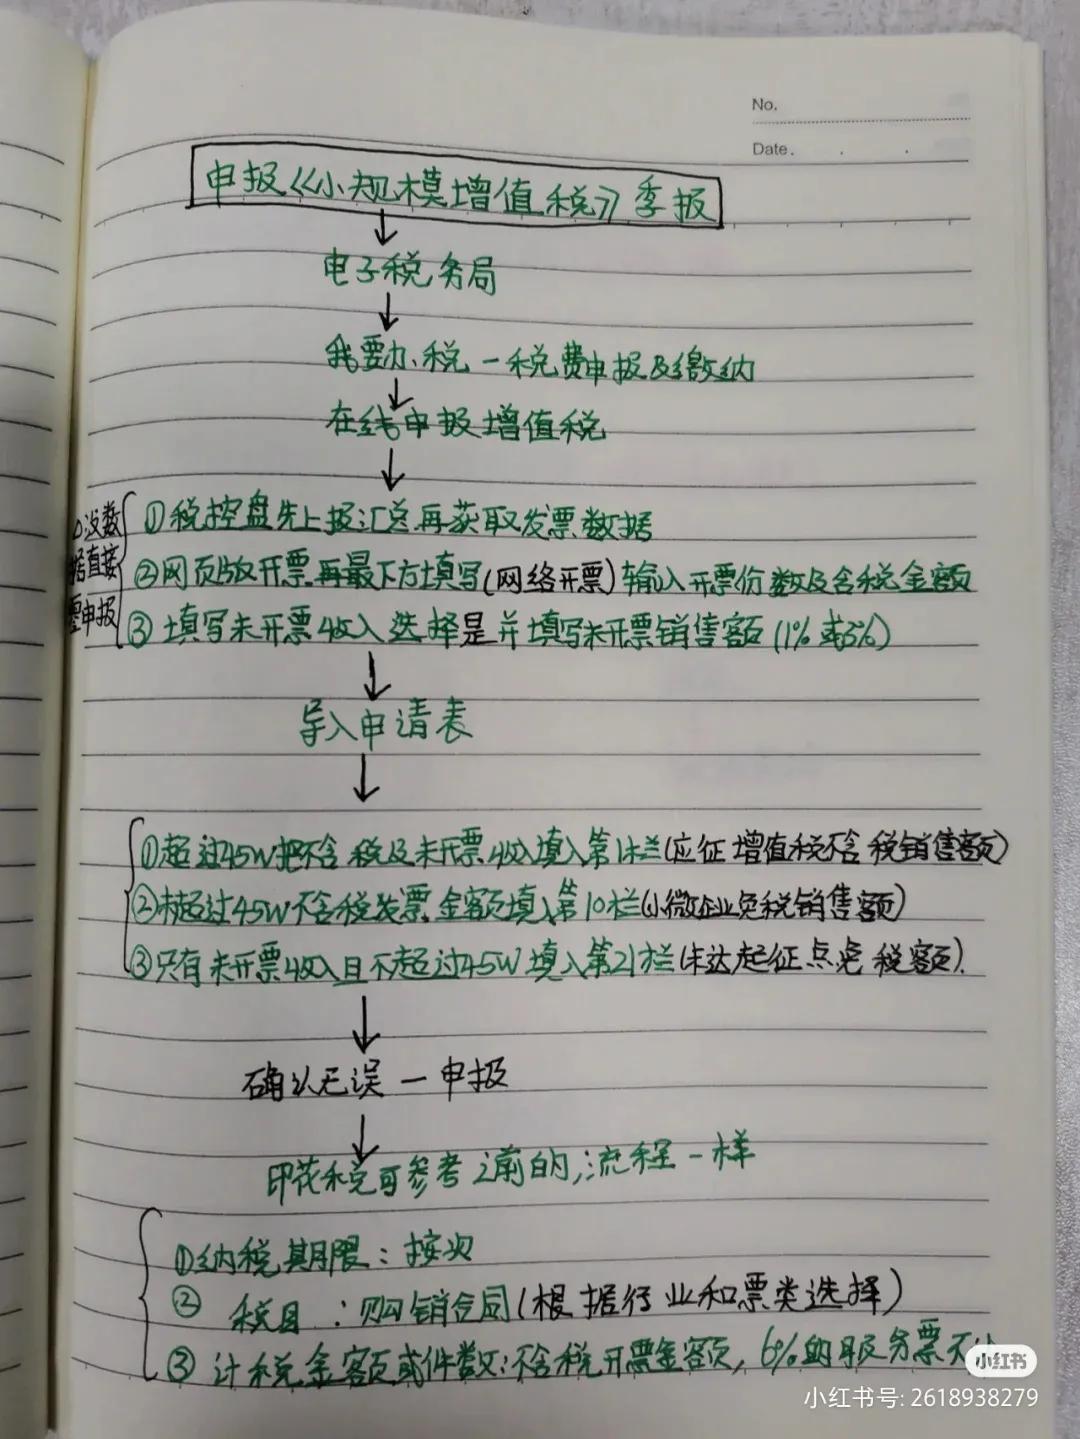 No.
Date.
申报《小规模增值税》季报
电子税务局
我要办税－税费申报及缴纳
在线申报增值税
①税控盘先上报汇总再获取发票数据
②网页版开票再最下方填写(网络开票)输入开票份数及含税金额
③填写未开票收入选择是并填写未开票销售额(1%或3%)
没数
据直接
零申报
导入申请表
①超过45W把不含税及未开票收入填入第1栏(应征增值税不含税销售额)
②未超过45W不含税发票金额填入第10栏(小微企业免税销售额)
③只有未开票收入且不超过45W填入第21栏(未达起征点免税额).
确认无误－申报
印花税可参考之前的,流程一样
①纳税期限：按次
②税目：购销合同(根据行业和票类选择)
③计税金额或件数:不含税开票金额,6%的服务票不
小红书
小红书号: 2618938279